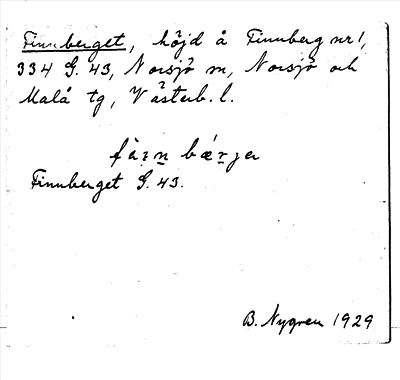 Finnberget, höjd å Finnberg nr 1,
334 G. 43, Norsjö sn, Norsjö och
Malå tg, Västerb. l.
bǽrjer
Finnberget G. 43.
B. Nygren 1929